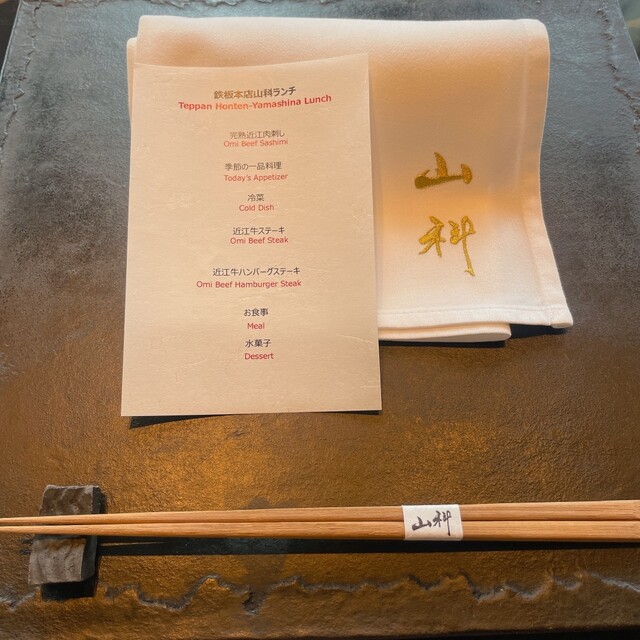 鉄板本店山科ランチ
Teppan Honten-Yamashina Lunch
完熟近江肉刺し
Omi Beef Sashimi
季節の一品料理
Today's Appetizer
冷菜
Cold Dish
近江牛ステーキ
Omi Beef Steak
近江牛ハンバーグステーキ
Omi Beef Hamburger Steak
お食事
Meal
水菓子
Dessert
山
科
山科